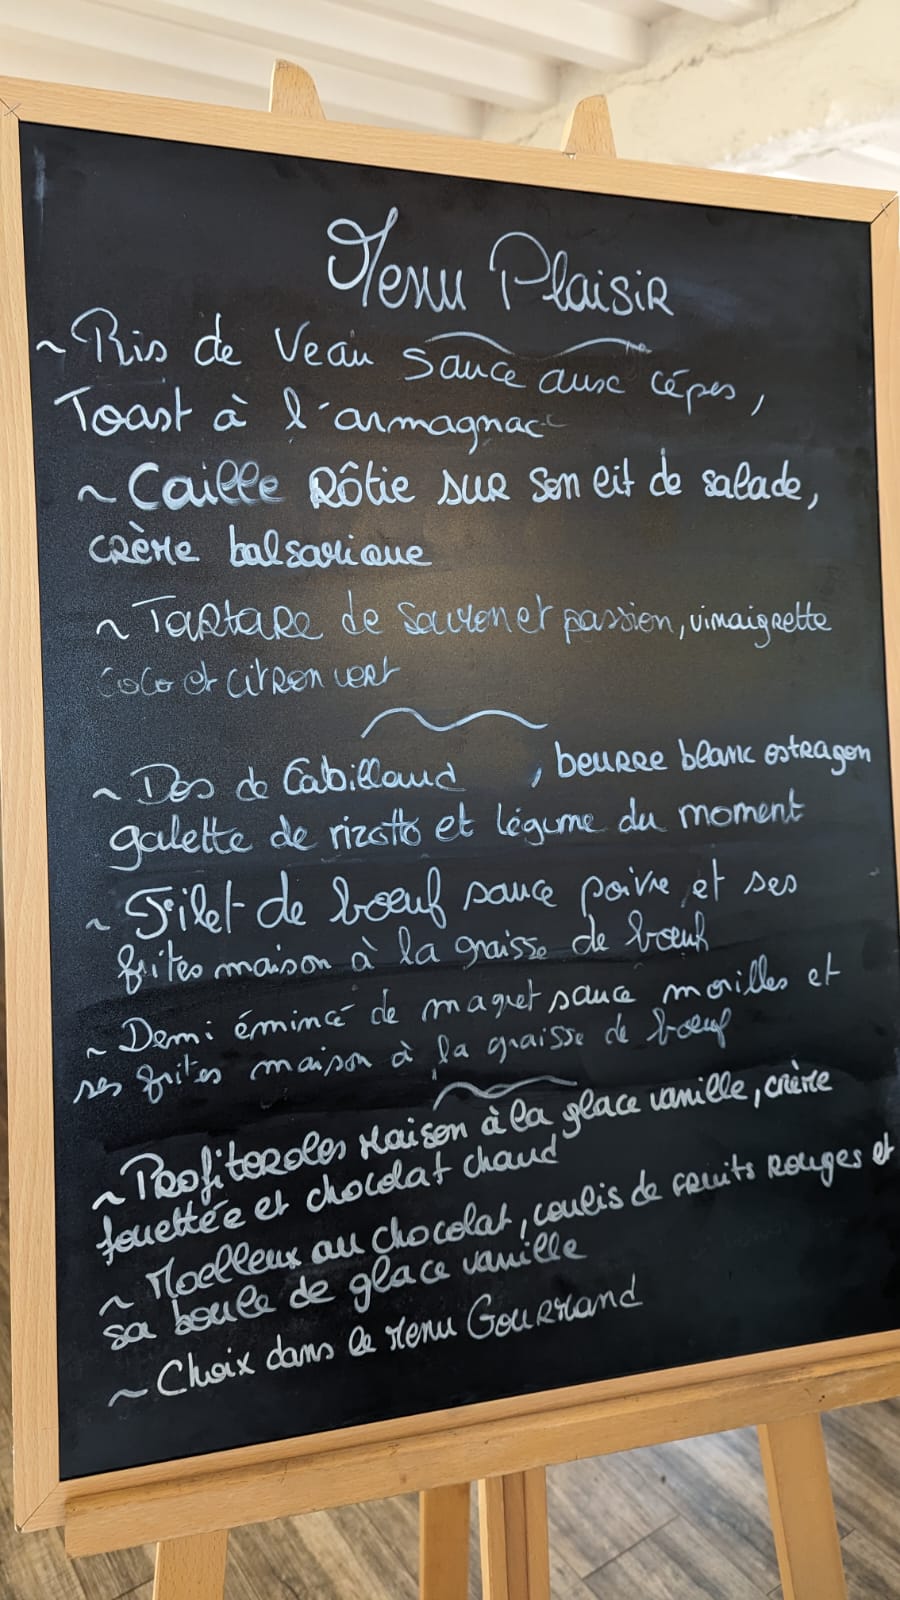 Menu Plaisir
~ Ris de Veau sauce aux cèpes,
Toast à l'armagnac
~ Caille Rôtie sur son lit de salade,
crème balsamique
~ Tartare de saumon et passion, vinaigrette
coco et citron vert
~ Dos de Cabillaud , beurre blanc estragon
galette de rizotto et légume du moment
~ Filet de bœuf sauce poivre et ses
frites maison à la graisse de bœuf
~ Demi émincé de magret sauce morilles et
ses frites maison à la graisse de bœuf
~ Profiteroles Maison à la glace vanille, crème
fouettée et chocolat chaud
~ Moelleux au chocolat, coulis de fruits rouges et
sa boule de glace vanille
~ Choix dans le Menu Gourmand